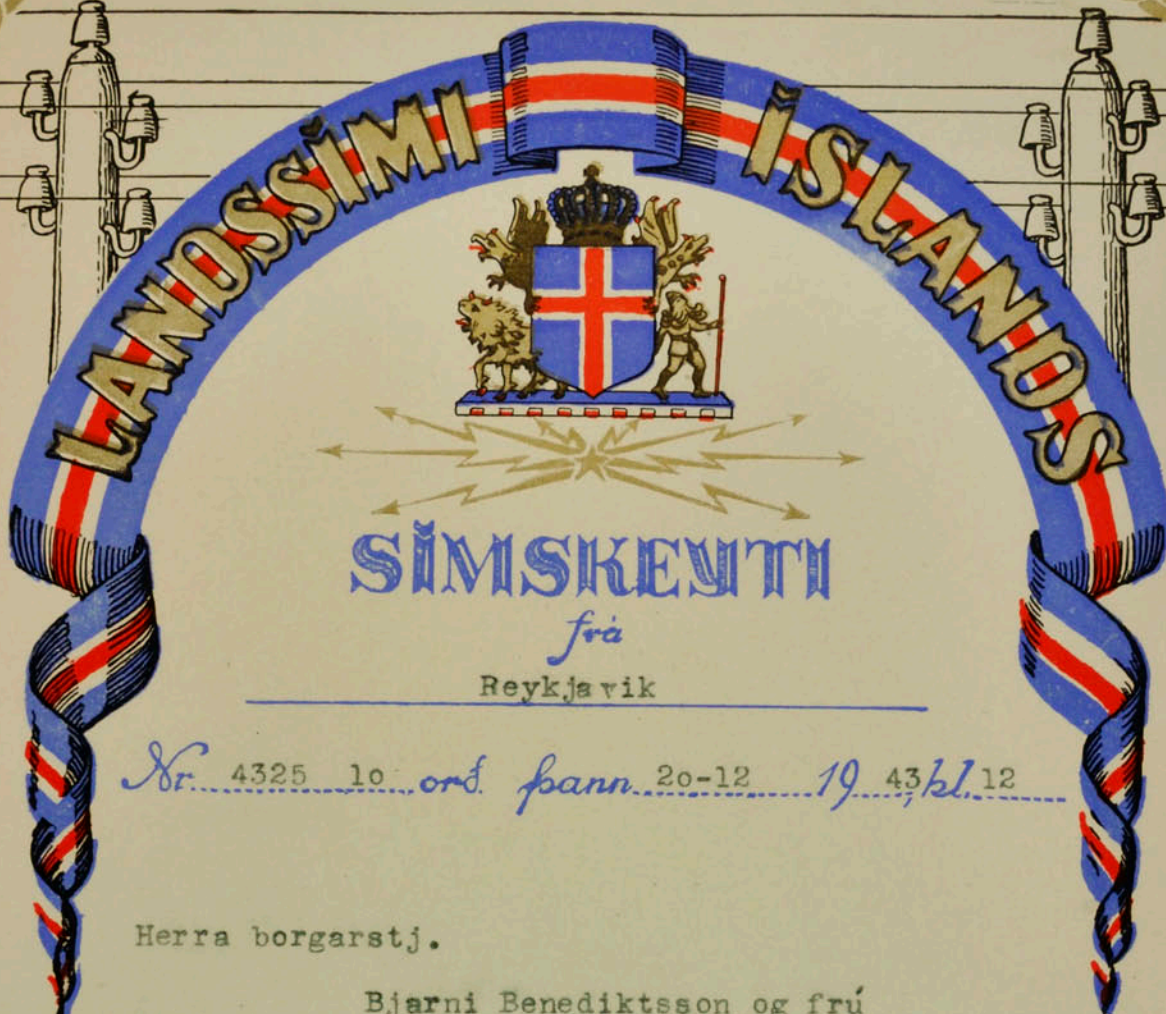 LANDSSÍMI ÍSLANDS
SÍMSKEYTI
frá
Reykjavik
Nr. 4325 1o orð. þann 2o-12 19 43, kl. 12
Herra borgarstj.
Bjarni Benediktsson og frú